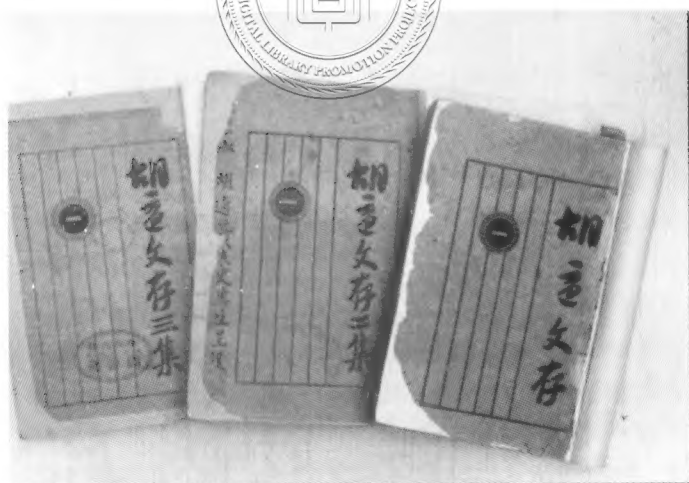 IGITAL LIBRARY PROMOTION PROJEC
胡適文存三集
胡適文存二集
胡適文存
一
一
一